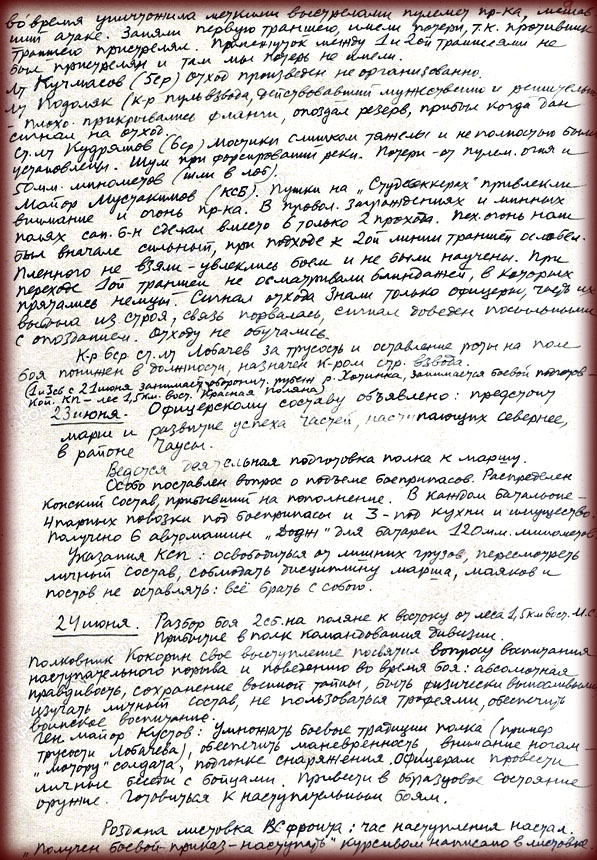 во время уничтожила меткими выстрелами пулемет пр-ка, мешав-
ший атаке. Заняли первую траншею, имели потери, т.к. противник
траншею пристрелял. Промежуток между 1 и 2ой траншеями не
был пристрелян и там мы потерь не имели.
Лт Кучмасов (5ср) отход произведен не организованно.
Лт Подоляк (к-р пульвзвода, действовавший мужественно и решительно
- плохо прикрывались фланги, опоздал резерв, прибыл когда дан
сигнал на отход.
Ст. лт Кудряшов (6ср) Мостики слишком тяжелы и не полностью были
установлены. Шум при форсировании реки. Потери - от пулем. огня и
50мм. минометов (шли в лоб).
Майор Мустакимов (КСБ). Пушки на „Студебеккерах" привлекли
внимание и огонь пр-ка. В провол. заграждениях и минных
полях сап. б-н сделал вместо 6 только 2 прохода. Пех. огонь наш
был вначале сильный, при подходе к 2ой линии траншей ослабел.
Пленного не взяли - увлеклись боем и не были научены. При
переходе 1ой траншеи не осматривали блиндажей, в которых
прятались немцы. Сигнал отхода знали только офицеры, часть их
выбыла из строя, связь порвалась, сигнал доведен посыльными
с опозданием. Отходу не обучались.
К-р 6ср ст. лт Лобачев за трусость и оставление роты на поле
боя понижен в должности, назначен к-ром стр. взвода.
(1 и 3сб с 21 июня занимают оборонит. рубеж р. Хотинка, занимается боевой подготов-
кой. КП - лес 1,5км. вост. Красная Поляна)
23 июня. Офицерскому составу объявлено: предстоит
марш и развитие успеха частей, наступающих севернее,
в районе Чаусы.
Ведется деятельная подготовка полка к маршу.
Особо поставлен вопрос о подъеме боеприпасов. Распределен
конский состав, прибывший на пополнение. В каждом батальоне -
4 парных повозки под боеприпасы и 3 - под кухни и имущество.
Получено 6 автомашин „Додж" для батареи 120мм. минометов.
Указания КСП: освободиться от лишних грузов, пересмотреть
личный состав, соблюдать дисциплину марша, маяков и
постов не оставлять: всё брать с собою.
24 июня. Разбор боя 2сб. на поляне к востоку от леса 1,5км вост. М.С.
Прибытие в полк командования дивизии.
Полковник Кокорин свое выступление посвятил вопросу воспитания
наступательного порыва и поведению во время боя: абсолютная
правдивость, сохранение военной тайны, быть физически выносливыми
изучать личный состав, не пользоваться трофеями, обеспечить
воинское воспитание.
Ген. майор Кустов: Умножать боевые традиции полка (пример
трусости Лобачева), обеспечить маневренность, внимание ногам -
„мотору" солдата, подгонке снаряжения. Офицерам провести
личные беседы с бойцами. Привести в образцовое состояние
оружие. Готовиться к наступательным боям.
Роздана листовка ВС фронта: час наступления настал.
„Получен боевой приказ - наступать" курсивом написано в листовке.